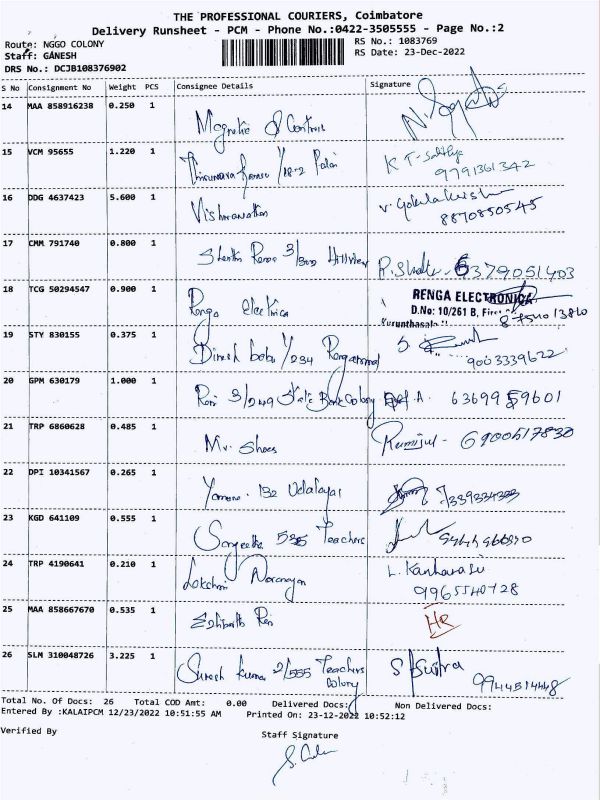 THE PROFESSIONAL COURIERS, Coimbatore
Delivery Runsheet - PCM - Phone No.:0422-3505555 - Page No.:2
Route: NGGO COLONY RS No.: 1083769
Staff: GANESH RS Date: 23-Dec-2022
DRS No.: DCJB108376902
S No Consignment No Weight PCS Consignee Details Signature
14 MAA 858916238 0.250 1
Magnetic & Controls
15 VCM 95655 1.220 1
K T- Sathya
9791361342
16 DDG 4637423 5.600 1
Vishwanathan
V. Gokulakrishn
8870850545
17 CMM 791740 0.800 1
3/302 Hillview
6379051403
18 TCG 50294547 0.900 1
Renga Electrica
RENGA ELECTRONICA
D.No: 10/261 B, First
Kurunthasala
19 STY 830155 0.375 1
Dinesh babu 1/234
9003339622
20 GPM 630179 1.000 1
Ravi 3/249 State Bank Colony
63699 59601
21 TRP 6860628 0.485 1
Mr. Shoes
6900517830
22 DPI 10341567 0.265 1
132
23 KGD 641109 0.555 1
Sangeetha Teachers
24 TRP 4190641 0.210 1
Lakshmi Narayanan
L. Kanharasu
9965540728
25 MAA 858667670 0.535 1
26 SLM 310048726 3.225 1
Suresh kumar 2/555 Teachers
Colony
9944514448
Total No. Of Docs: 26 Total COD Amt: 0.00 Delivered Docs: Non Delivered Docs:
Entered By :KALAIPCM 12/23/2022 10:51:55 AM Printed On: 23-12-2022 10:52:12
Verified By Staff Signature